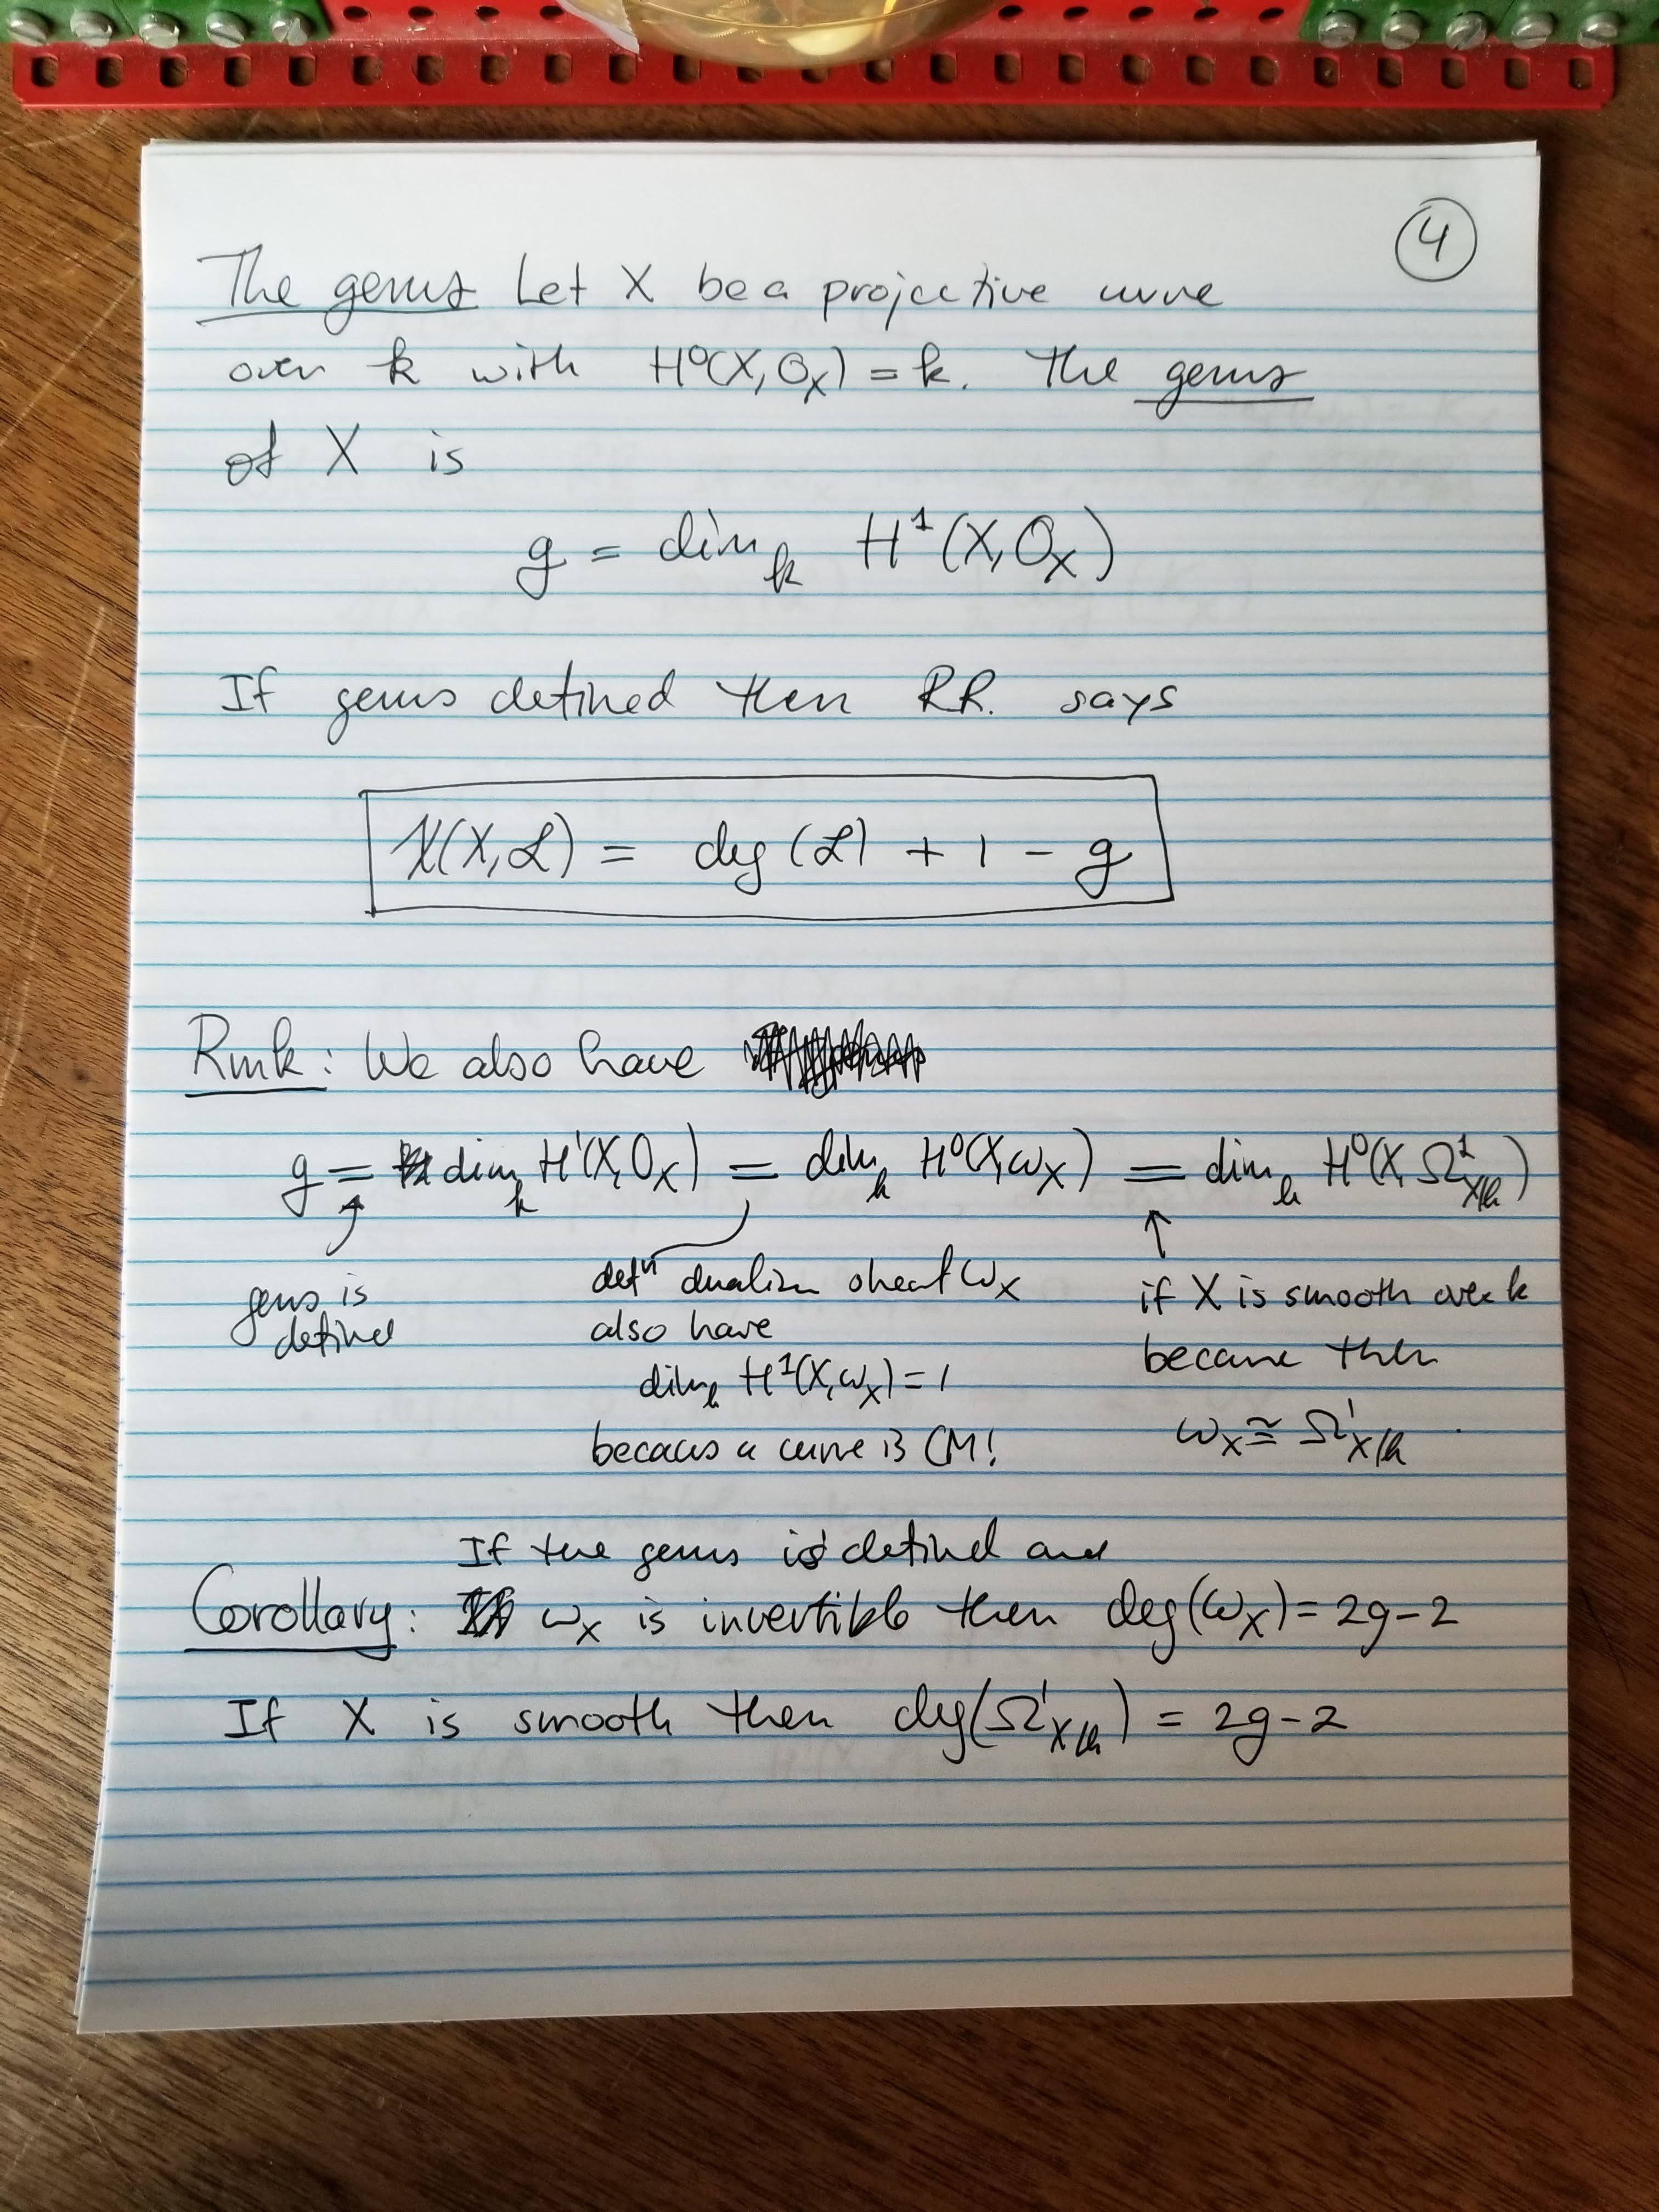 4
The genus Let X be a projective curve
over k with H⁰(X, O_X) = k. The genus
of X is
g = dim_k H¹(X, O_X)
If genus defined then RR. says
χ(X, ℒ) = deg(ℒ) + 1 - g
Rmk: We also have
g = dim_k H¹(X, O_X) = dim_k H⁰(X, ω_X) = dim_k H⁰(X, Ω¹_{X/k})
genus is
defined
defⁿ dualizin sheaf ω_X
also have
dim_k H¹(X, ω_X) = 1
becaus a curve is CM!
if X is smooth over k
because then
ω_X ≅ Ω¹_{X/k}
If the genus is defined and
Corollary: ω_X is invertible then deg(ω_X) = 2g-2
If X is smooth then deg(Ω¹_{X/k}) = 2g-2